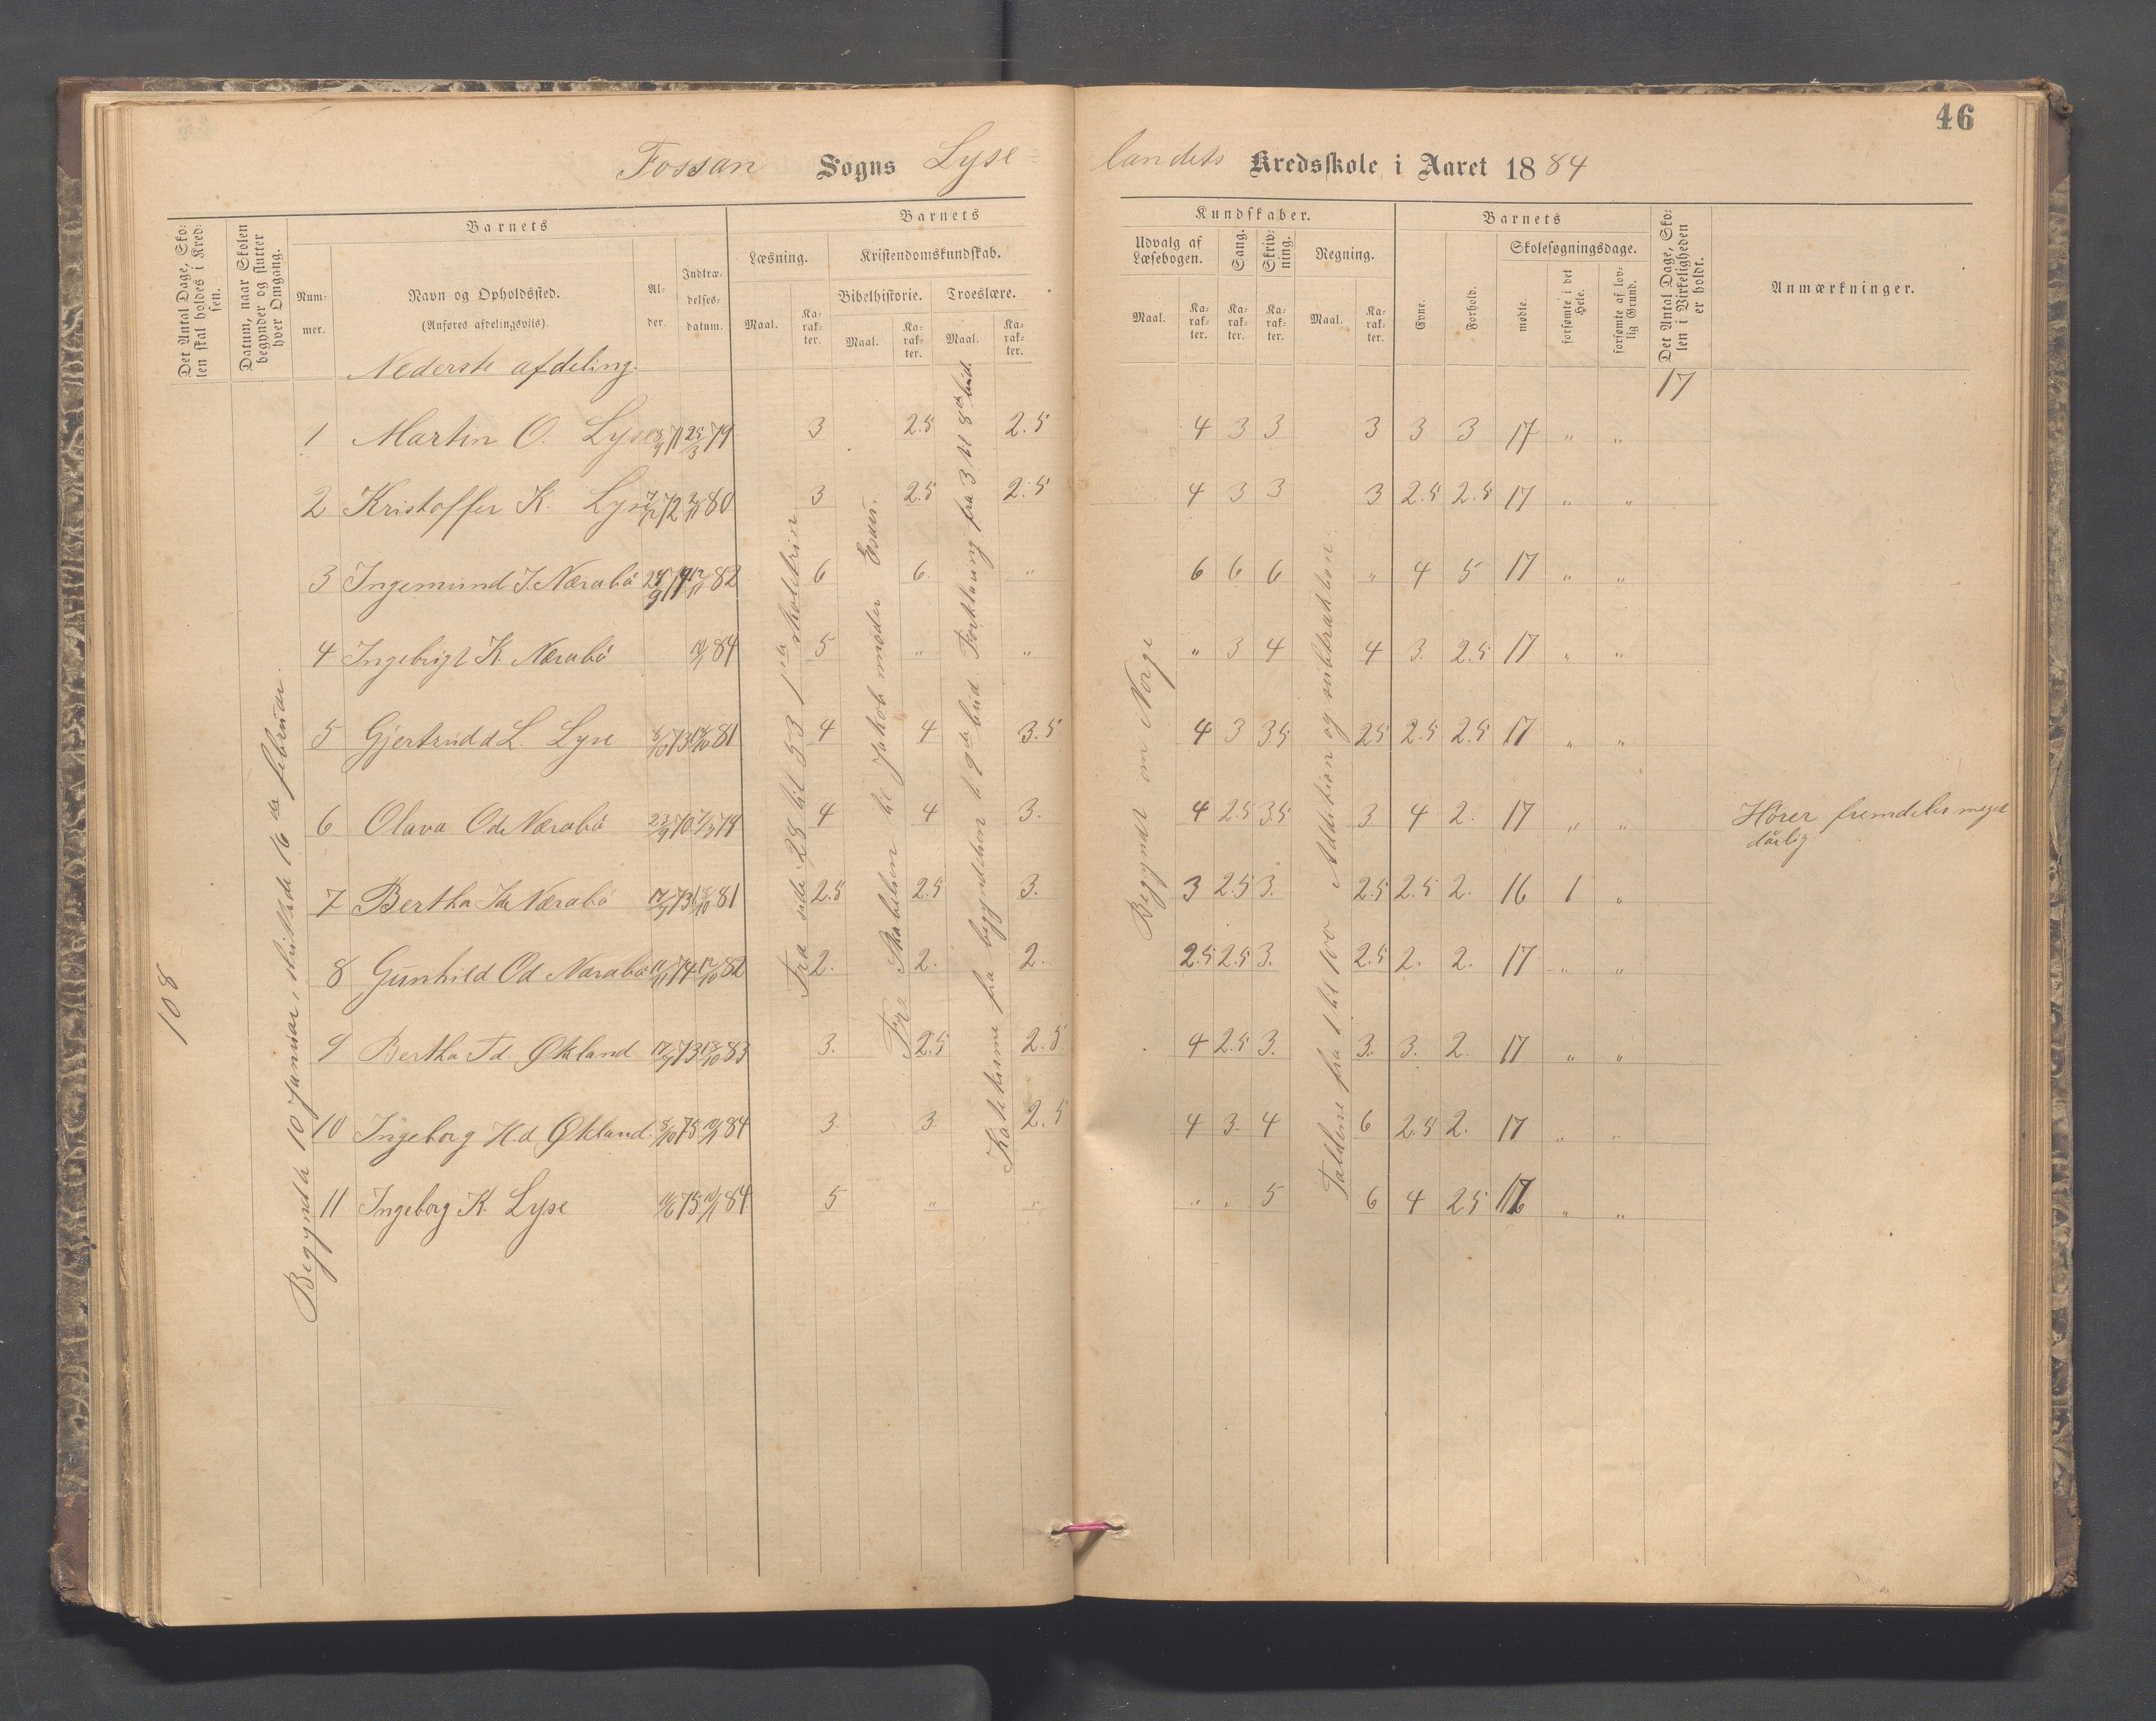 46
Fossan Sogns Lyse=
landets Kredsskole i Aaret 1884
Det Antal Dage, Skolen skal holdes i Kredsen.
Datum, naar Skolen begynder og slutter hver Omgang.
Barnets
Nummer.
Navn og Opholdssted.
(Anføres afdelingsviis).
Alder.
Indtrædelsesdatum.
Barnets
Læsning.
Kristendomskundskab.
Bibelhistorie. Troeslære.
Maal. Karakter. Maal. Karakter. Maal. Karakter.
Kundskaber.
Udvalg af Læsebogen.
Sang.
Skrivning.
Regning.
Maal. Karakter. Karakter. Karakter. Maal. Karakter.
Barnets
Evne.
Forhold.
Skolesøgningsdage.
mødte.
forsømte i det Hele.
forsømte af lovlig Grund.
Det Antal Dage, Skolen i Virkeligheden er holdt.
Anmærkninger.
Nederste afdeling.
17
108
Begyndte 10 Januar, sluttede 16de februar.
Fra side 28 til 53 1ste skoletrin
Fra Skabelsen til Jakob møder Esau.
Katekisme fra begyndelsen til 9de bud Forklaring fra 3 til 8de bud
Begyndt om Norge
Taldene fra 1 til 100 Addition og subtraktion.
1 Martin O. Lyse 18/9 71 25/3 79 3 2.5 2.5 4 3 3 3 3 3 17 " "
2 Kristoffer K. Lyse 72 80 3 2.5 2.5 4 3 3 3 2.5 2.5 17 " "
3 Ingemund J. Nærabø 24/9 74 82 6 6. " 6 6 6 " 4 5 17 " "
4 Ingebrigt K. Nærabø 10/1 84 5 " " " 3 4 4 3. 2.5 17 " "
5 Gjertrud d L. Lyse 5/10 73 18/10 81 4 4 3.5 4 3 3.5 2.5 2.5 2.5 17 " "
6 Olava Od. Nærabø 23/9 70 79 4 4 3. 4 2.5 3.5 3 4 2. 17 " " Hører fremdeles meget
dårlig
7 Bertha Id. Nærabø 73 18/10 81 2.5 2.5 3. 3 2.5 3. 2.5 2.5 2. 16 1 "
8 Gunhild Od Nærabø 74 12/10 82 2. 2. 2. 2.5 2.5 3. 2.5 2. 2. 17 " "
9 Bertha Td Økland 73 18/10 83 3. 2.5 2.5 4 2.5 3. 3. 3. 2. 17 " "
10 Ingeborg H.d Økland 5/10 75 10/1 84 3 3 2.5 4 3 4 6 2.5 2. 17 " "
11 Ingeborg K. Lyse 75 10/1 84 5 " " " " 5 6 4 2.5 " "